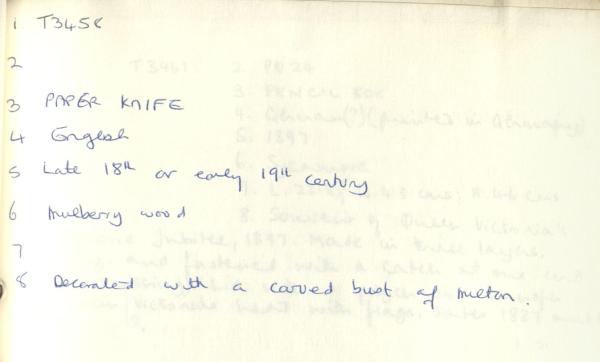 1 T3458
2
3 PAPER KNIFE
4 English
5 Late 18th or early 19th century
6 Mulberry wood
7
8 Decorated with a carved bust of Milton.